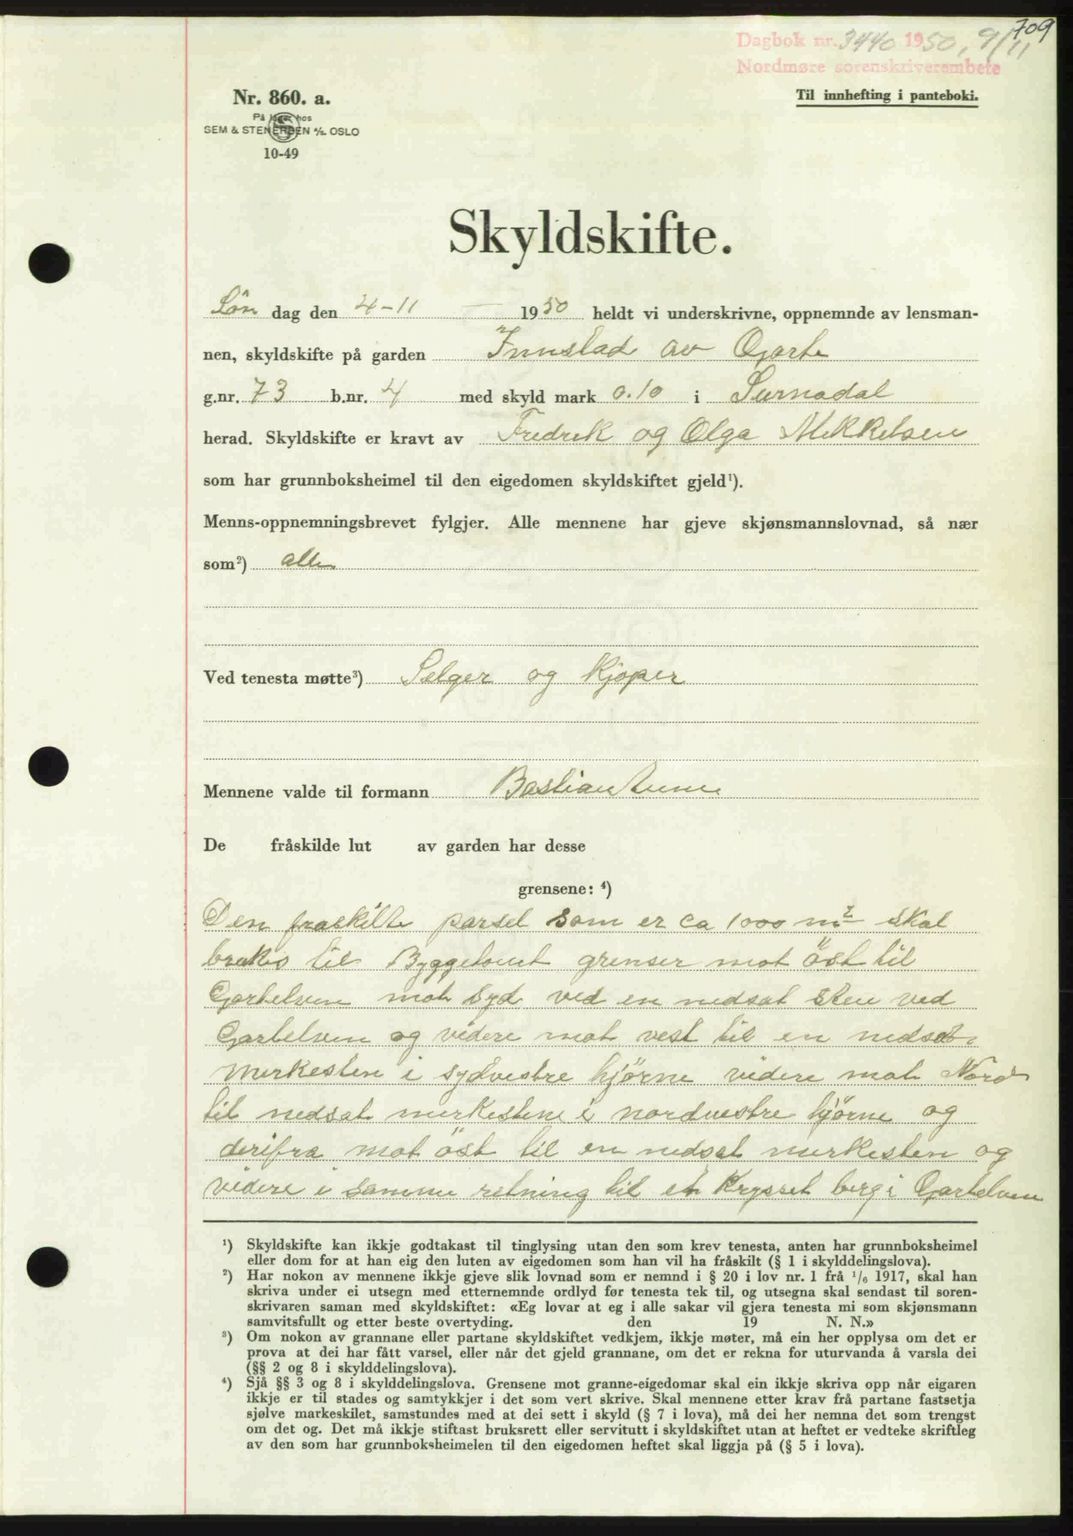 709
Dagbok nr. 3440 1950, 9/11
Nordmøre sorenskriverembete
Nr. 860. a.
Til innhefting i panteboki.
På lager hos
SEM & STENERSEN A/S. OSLO
10-49
Skyldskifte.
Løn dag den 4-11 — 1950 heldt vi underskrivne, oppnemnde av lensman-
nen, skyldskifte på garden Innstad av Garte
g.nr. 73 b.nr. 4 med skyld mark 0.10 i Surnadal
herad. Skyldskifte er kravt av Fredrik og Olga Mikkelsen
som har grunnboksheimel til den eigedomen skyldskiftet gjeld¹).
Menns-oppnemningsbrevet fylgjer. Alle mennene har gjeve skjønsmannslovnad, så nær
som²) alle
Ved tenesta møtte³) Selger og Kjøper
Mennene valde til formann Bastian
De fråskilde lut av garden har desse
grensene: ⁴)
Den fraskilte parsel som er ca 1000 m² skal
brukes til Byggetomt grenser mot öst til
Gartelven mot syd ved en nedsat sten ved
Gartelven og videre mot vest til en nedsat
merkesten i sydvestre hjörne videre mot Nord
til nedsat merkestene i nordvestre hjörne og
derifra mot öst til en nedsat merkesten og
videre i samme retning til et krysset berg i Gartelven
¹) Skyldskifte kan ikkje godtakast til tinglysing utan den som krev tenesta, anten har grunnboksheimel
eller dom for at han eig den luten av eigedomen som han vil ha fråskilt (§ 1 i skylddelingslova).
²) Har nokon av mennene ikkje gjeve slik lovnad som er nemnd i § 20 i lov nr. 1 frå 1/6 1917, skal han
skriva under ei utsegn med etternemnde ordlyd før tenesta tek til, og utsegna skal sendast til soren-
skrivaren saman med skyldskiftet: «Eg lovar at eg i alle sakar vil gjera tenesta mi som skjønsmann
samvitsfullt og etter beste overtyding. den 19 N. N.»
³) Om nokon av grannane eller partane skyldskiftet vedkjem, ikkje møter, må ein her opplysa om det er
prova at dei har fått varsel, eller når det gjeld grannane, om det er rekna for uturvanda å varsla dei
(§§ 2 og 8 i skylddelingslova).
⁴) Sjå §§ 3 og 8 i skylddelingslova. Grensene mot granne-eigedomar skal ein ikkje skriva opp når eigaren
ikkje er til stades og samtykkjer i det som vert skrive. Skal mennene etter krav frå partane fastsetja
sjølve markeskilet, samstundes med at dei sett i skyld (§ 7 i lova), må dei her nemna det som trengst
om det og. Det må ikkje stiftast bruksrett eller servitutt i skyldskiftet utan at heftet er vedteke skriftleg
av den som har grunnboksheimelen til den eigedomen heftet skal liggja på (§ 5 i lova).